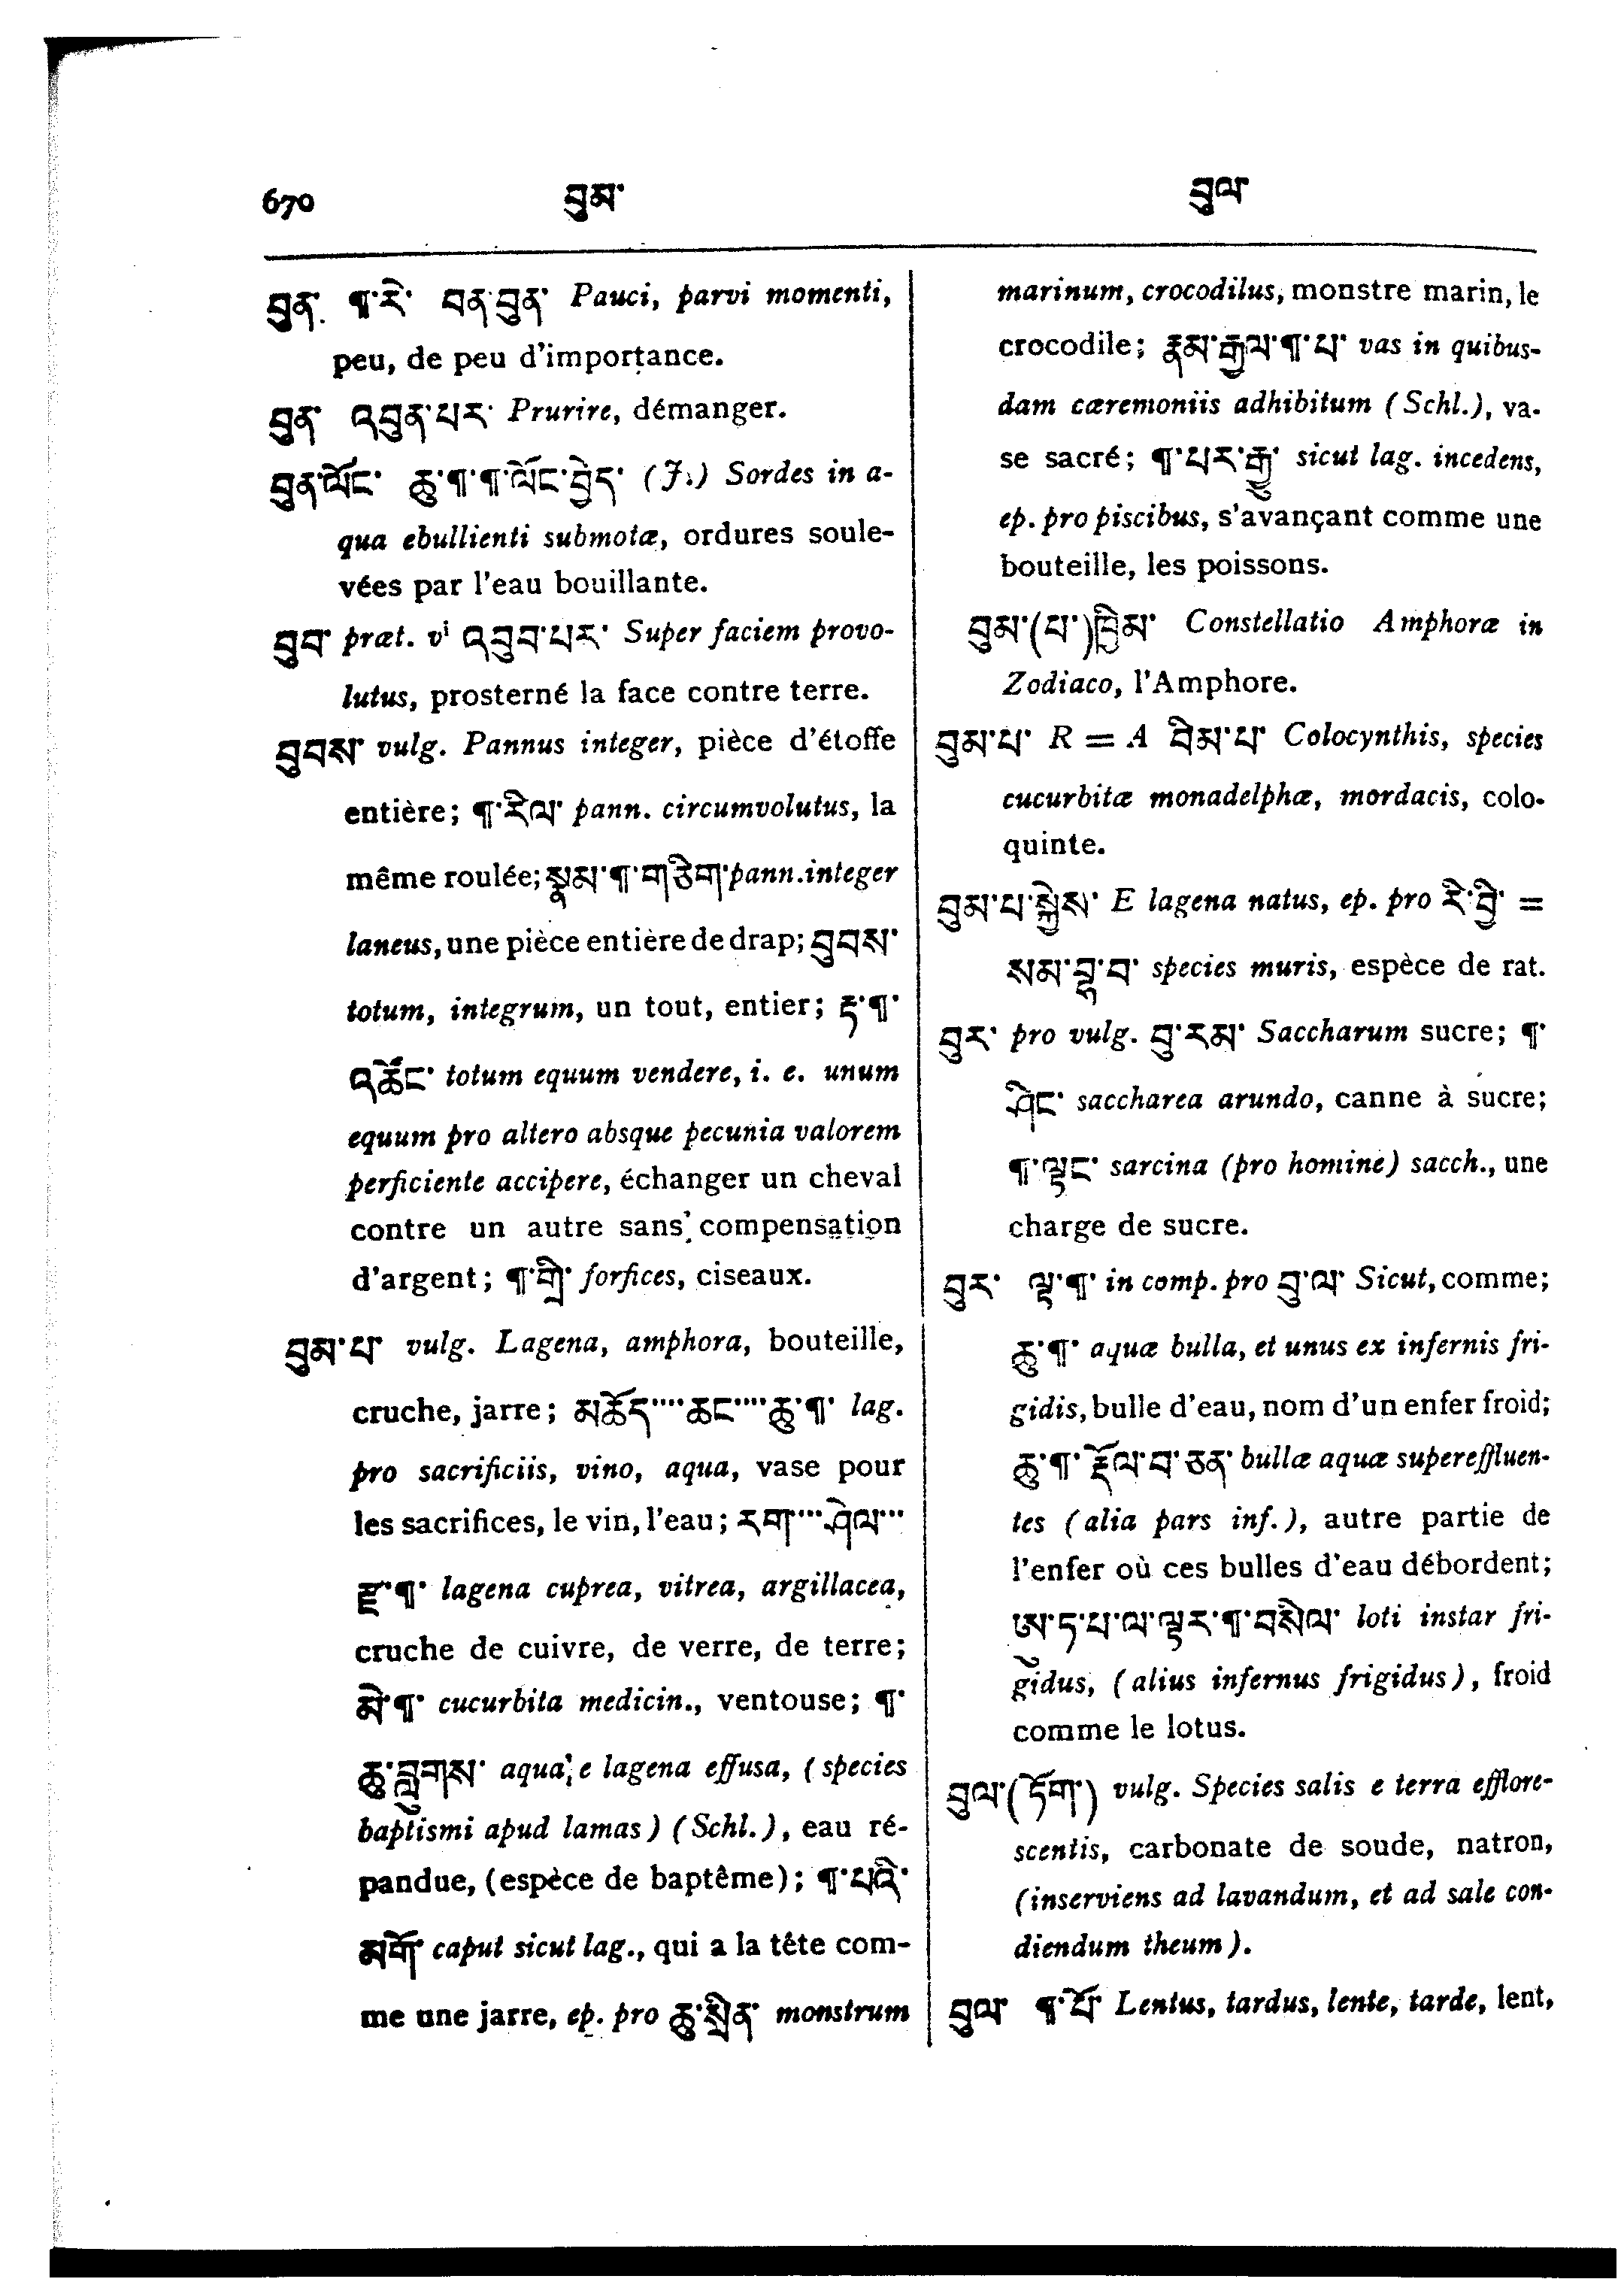 670 བུམ་ བུལ་
བུན་ ¶་རེ་ བན་བུན་ Pauci, parvi momenti,
peu, de peu d'importance.
བུན་ འབུན་པར་ Prurire, démanger.
བུན་ལོང་ ཆུ་¶་¶་ལོང་བྱེད་ (J.) Sordes in a-
qua ebullienti submotæ, ordures soule-
vées par l'eau bouillante.
བུབ་ præt. vⁱ འབུབ་པར་ Super faciem provo-
lutus, prosterné la face contre terre.
བུབས་ vulg. Pannus integer, pièce d'étoffe
entière; ¶་རིལ་ pann. circumvolutus, la
même roulée; སྣམ་¶་གཅིག་ pann. integer
laneus, une pièce entière de drap; བུབས་
totum, integrum, un tout, entier; རྟ་¶་
འཚོང་ totum equum vendere, i. e. unum
equum pro altero absque pecunia valorem
perficiente accipere, échanger un cheval
contre un autre sans compensation
d'argent; ¶་གྲི་ forfices, ciseaux.
བུམ་པ་ vulg. Lagena, amphora, bouteille,
cruche, jarre; མཆོད་་་་ཆང་་་་ཆུ་¶་ lag.
pro sacrificiis, vino, aqua, vase pour
les sacrifices, le vin, l'eau; རག་་་་ཤེལ་་་་
རྫ་¶་ lagena cuprea, vitrea, argillacea,
cruche de cuivre, de verre, de terre;
མེ་¶་ cucurbita medicin., ventouse; ¶་
ཆུ་བླུགས་ aqua e lagena effusa, (species
baptismi apud lamas) (Schl.), eau ré-
pandue, (espèce de baptême); ¶་པའི་
མགོ་ caput sicut lag., qui a la tête com-
me une jarre, ep. pro ཆུ་སྲིན་ monstrum
marinum, crocodilus, monstre marin, le
crocodile; རྣམ་རྒྱལ་¶་པ་ vas in quibus-
dam cæremoniis adhibitum (Schl.), va-
se sacré; ¶་པར་རྒྱུ་ sicut lag. incedens,
ep. pro piscibus, s'avançant comme une
bouteille, les poissons.
བུམ་(པ་)ཁྱིམ་ Constellatio Amphoræ in
Zodiaco, l'Amphore.
བུམ་པ་ R = A བིམ་པ་ Colocynthis, species
cucurbitæ monadelphæ, mordacis, colo-
quinte.
བུམ་པ་སྐྱེས་ E lagena natus, ep. pro རི་བྱི་ =
སམ་བྷ་བ་ species muris, espèce de rat.
བུར་ pro vulg. བུ་རམ་ Saccharum sucre; ¶་
ཤིང་ saccharea arundo, canne à sucre;
¶་ལྟང་ sarcina (pro homine) sacch., une
charge de sucre.
བུར་ ལྟ་¶་ in comp. pro བུ་ལ་ Sicut, comme;
ཆུ་¶་ aquæ bulla, et unus ex infernis fri-
gidis, bulle d'eau, nom d'un enfer froid;
ཆུ་¶་རྡོལ་བ་ཅན་ bullæ aquæ supereffluen-
tes (alia pars inf.), autre partie de
l'enfer où ces bulles d'eau débordent;
ཨུ་ཏ་པ་ལ་ལྟར་¶་བསིལ་ loti instar fri-
gidus, (alius infernus frigidus), froid
comme le lotus.
བུལ་(ཏོག་) vulg. Species salis e terra efflore-
scentis, carbonate de soude, natron,
(inserviens ad lavandum, et ad sale con-
diendum theum).
བུལ་ ¶་པོ་ Lentus, tardus, lente, tarde, lent,